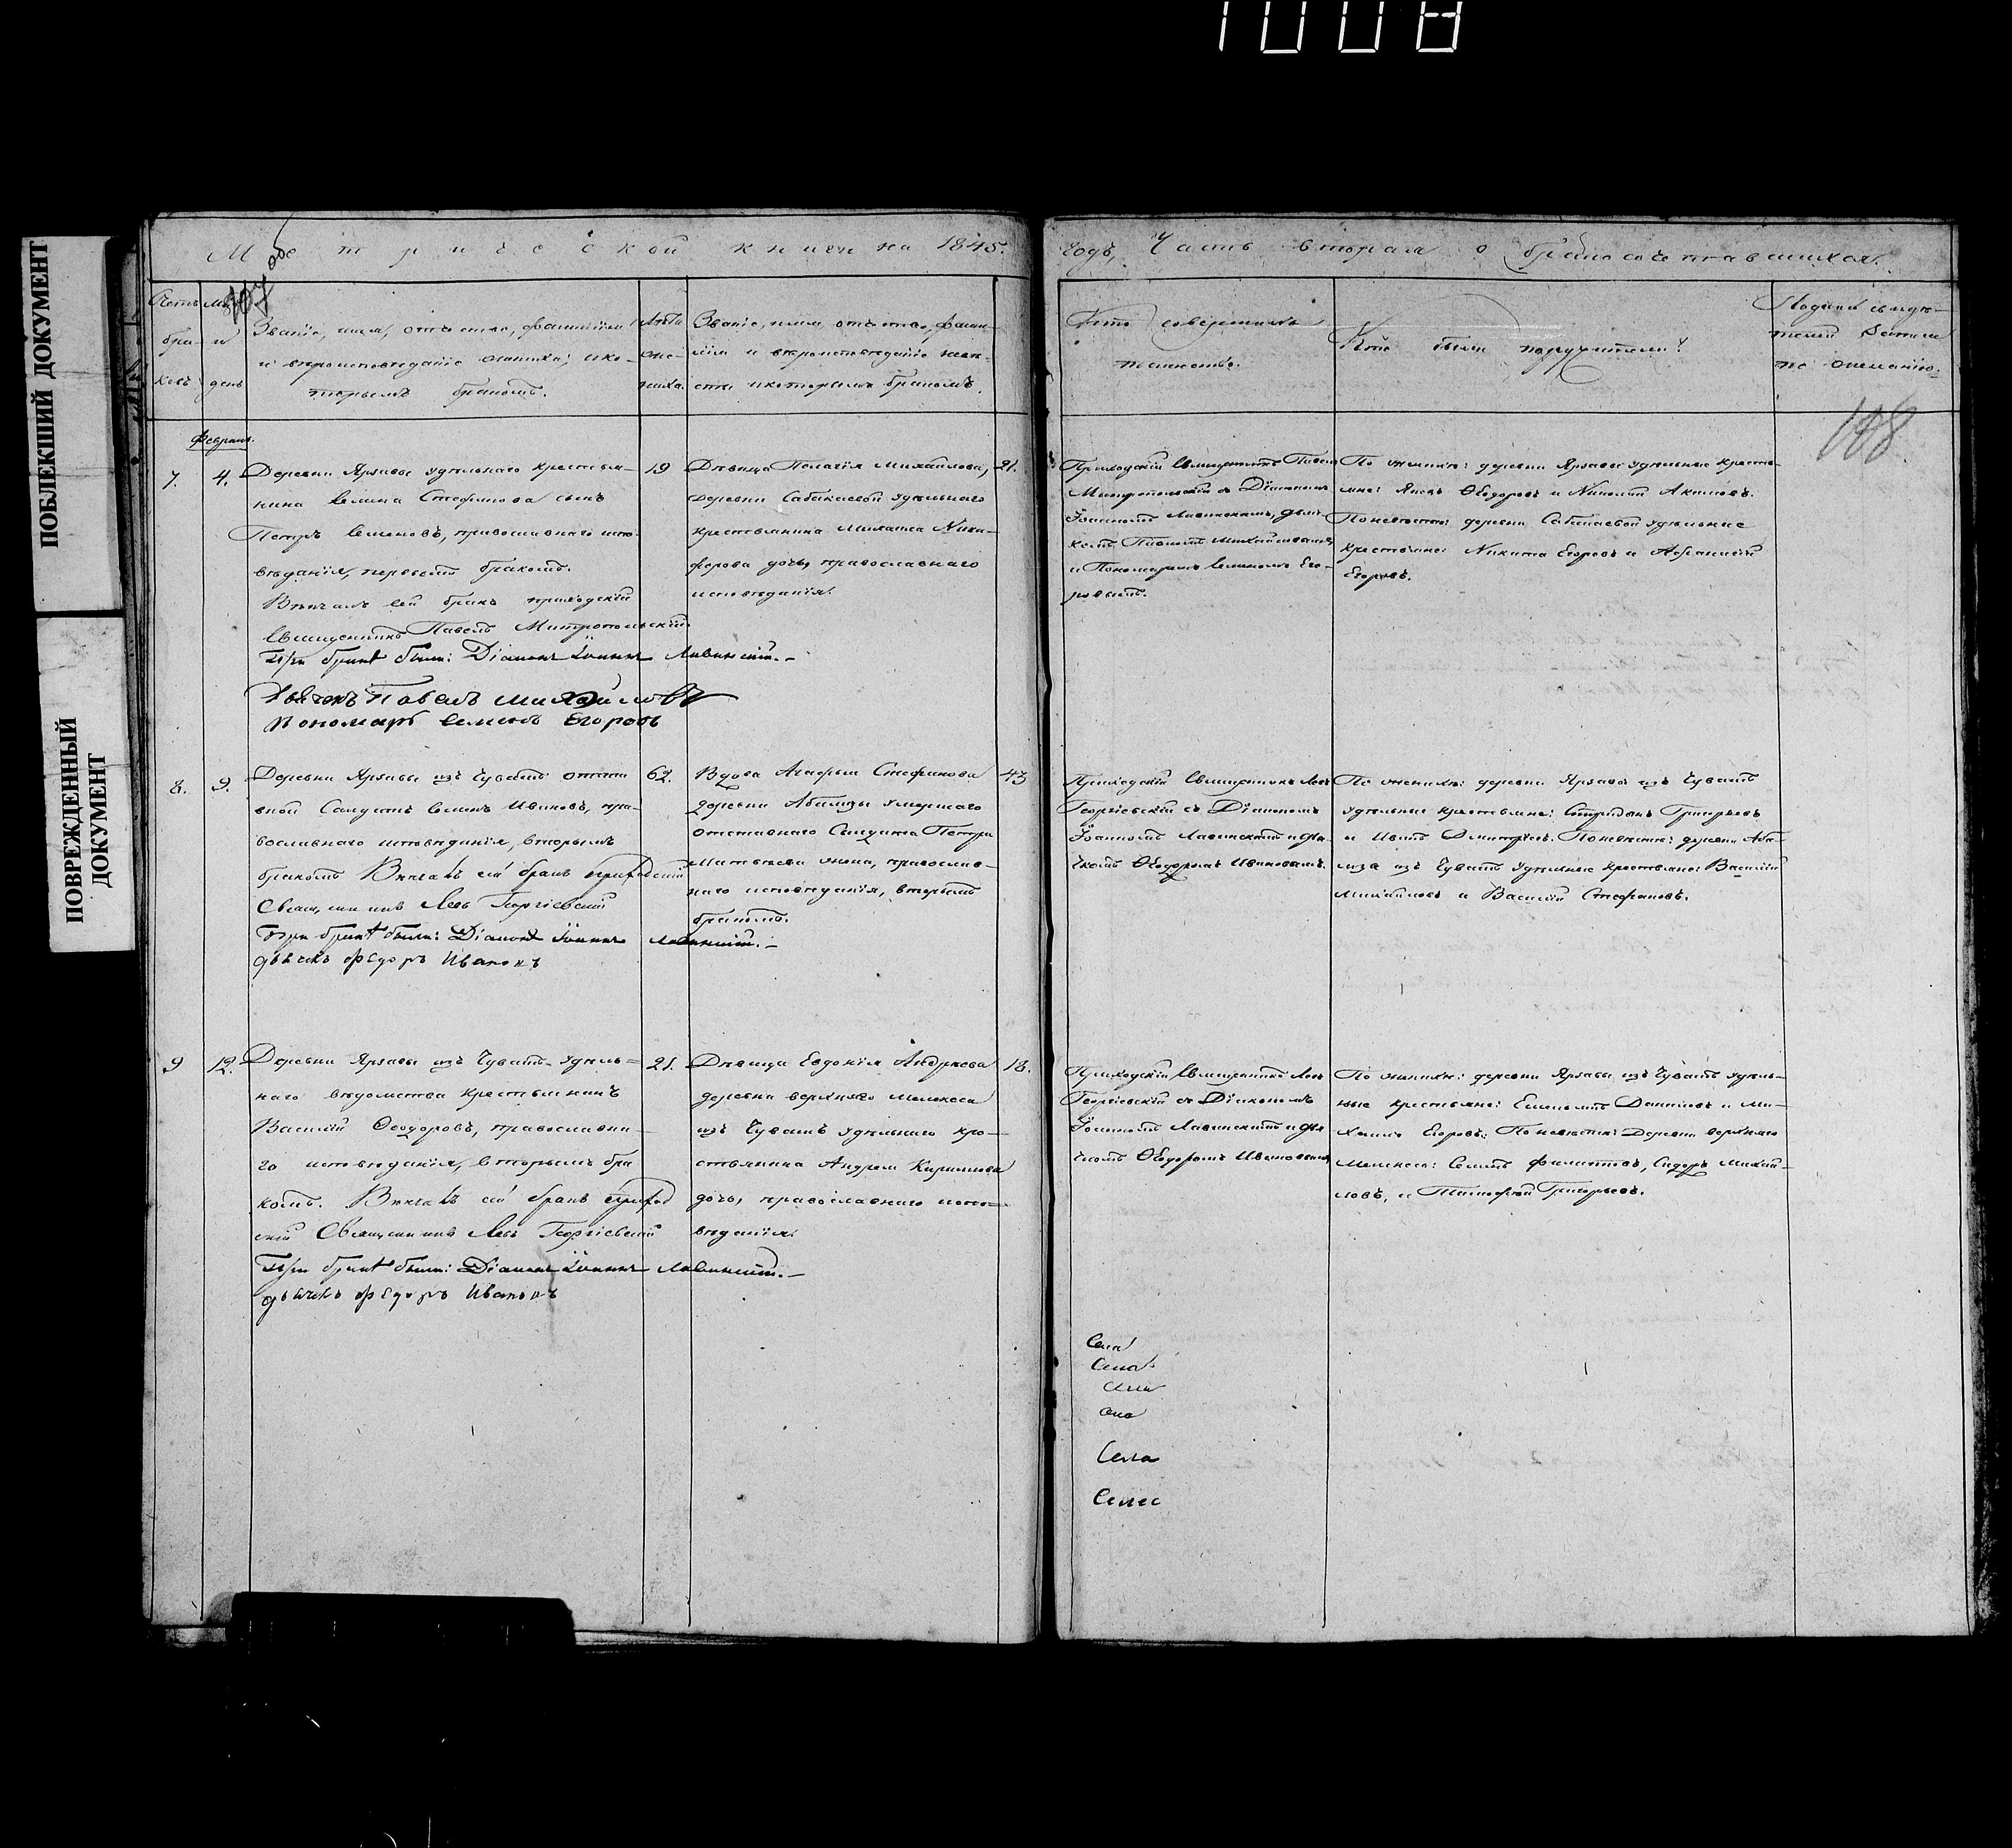 1008
ПОБЛЕКШИЙ ДОКУМЕНТ
ПОВРЕЖДЕННЫЙ
ДОКУМЕНТ
Метрической книги на 1845.
107 об
Счетъ
бра-
ковъ
и
день
Званіе, имя, отчество, фамилія
и вѣроисповѣданіе жениха; и ко-
торымъ бракомъ.
Лѣта
же-
ниха.
Званіе, имя, отчество, фами-
лія и вѣроисповѣданіе невѣ-
сты и которымъ бракомъ.
Февраль.
7. 4.
Деревни Яркавы удѣльнаго крестья-
нина Семена Стефанова сынъ
Петръ Семеновъ, православнаго испо-
вѣданія, первымъ бракомъ.
Вѣнчалъ сей бракъ приходскій
Священникъ Павелъ Митропольскій
При бракѣ были: Діаконъ Іоаннъ Лавинскій.-
Дьячекъ Павелъ Михайловъ
Пономарь Семенъ Егоровъ
19
Дѣвица Пелагія Михайлова,
деревни Сабакаевой удѣльнаго
крестьянина Михаила Ники-
форова дочь, православнаго
исповѣданія.
21.
8. 9.
Деревни Яркавы изъ Чувашъ отста
вной Солдатъ Семенъ Ивановъ, пра-
вославнаго исповѣданія, вторымъ
бракомъ Вѣнчалъ сей бракъ приходскій
Священникъ Левъ Георгіевскій
При бракѣ были: Діаконъ Іоаннъ Лавинскій.-
дьячекъ Федоръ Ивановъ
62.
Вдова Агафья Стефанова
деревни Абамзы умершаго
отставнаго Солдата Петра
Матвѣева жена, православ-
наго исповѣданія, вторымъ
бракомъ.
43
9 12.
Деревни Яркавы изъ Чувашъ удѣль-
наго вѣдомства крестьянинъ
Василій Ѳеодоровъ, православна-
го исповѣданія, вторымъ бра
комъ. Вѣнчалъ сей бракъ приход
скій Священникъ Левъ Георгіевскій
При бракѣ были: Діаконъ Іоаннъ Лавинскій.-
дьячекъ Федоръ Ивановъ
21.
Дѣвица Евдокія Андреева
деревни верхняго Мелекеса
изъ Чувашъ удѣльнаго кре-
стьянина Андрея Кирилова
дочь, православнаго испо-
вѣданія.
18.
годъ, Часть вторая о бракосочетавшихся.
Кто совершалъ
таинство.
Кто были поручители?
Подпись свидѣ-
телей записи
по желанію.
108
Приходскій Священникъ Павелъ
Митропольскій съ Діакономъ
Іоанномъ Лавинскимъ, дьяч-
комъ Павломъ Михайловымъ
и Пономаремъ Семеномъ Его-
ровымъ.
По женихѣ: деревни Яркавы удѣльные кресть-
яне: Яковъ Ѳеодоровъ и Николай Акимовъ.
По невѣстѣ: деревни Сабакаевой удѣльные
крестьяне: Никита Егоровъ и Афанасій
Егоровъ.
Приходскій Священникъ Левъ
Георгіевскій съ Діакономъ
Іоанномъ Лавинскимъ и дья
чкомъ Ѳеодоромъ Ивановымъ.
По женихѣ: деревни Яркавы изъ Чувашъ
удѣльные крестьяне: Спиридонъ Григорьевъ
и Иванъ Дмитріевъ. По невѣстѣ: деревни Аба-
мза изъ Чувашъ удѣльные крестьяне: Василій
Михайловъ и Василій Стефановъ.
Приходскій Священникъ Левъ
Георгіевскій съ Діакономъ
Іоанномъ Лавинскимъ и дья
чкомъ Ѳеодоромъ Ивановымъ
По женихѣ: деревни Яркавы изъ Чувашъ удѣль-
ные крестьяне: Емельянъ Даниловъ и Ми-
хаилъ Егоровъ: По невѣстѣ: деревни верхняго
Мелекеса: Семенъ Филиповъ, Сидоръ Михай-
ловъ, и Тимофей Григорьевъ.
Села
Села
Села
Села